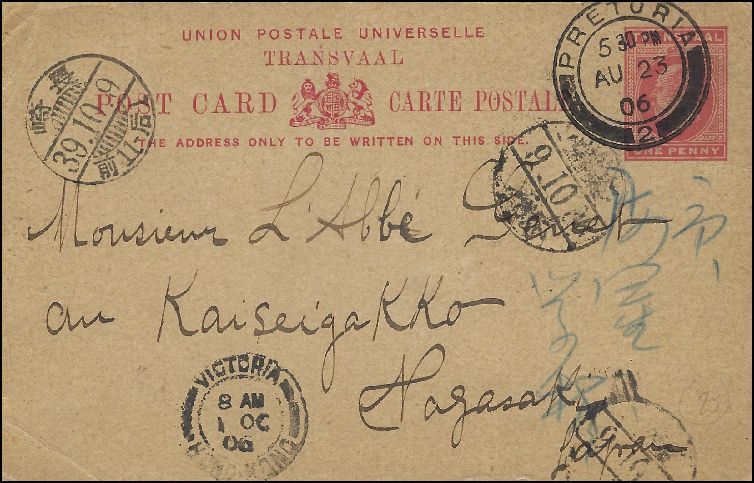 UNION POSTALE UNIVERSELLE
TRANSVAAL
POST CARD CARTE POSTALE
THE ADDRESS ONLY TO BE WRITTEN ON THIS SIDE.
ONE PENNY
PRETORIA
5 30 PM
AU 23
06
2
長崎
39.10.9
前11-后
9.10
Monsieur L'Abbé
au Kaiseigakko
Nagasaki
Japan
VICTORIA
8 AM
1 OC
06
HONG-KONG